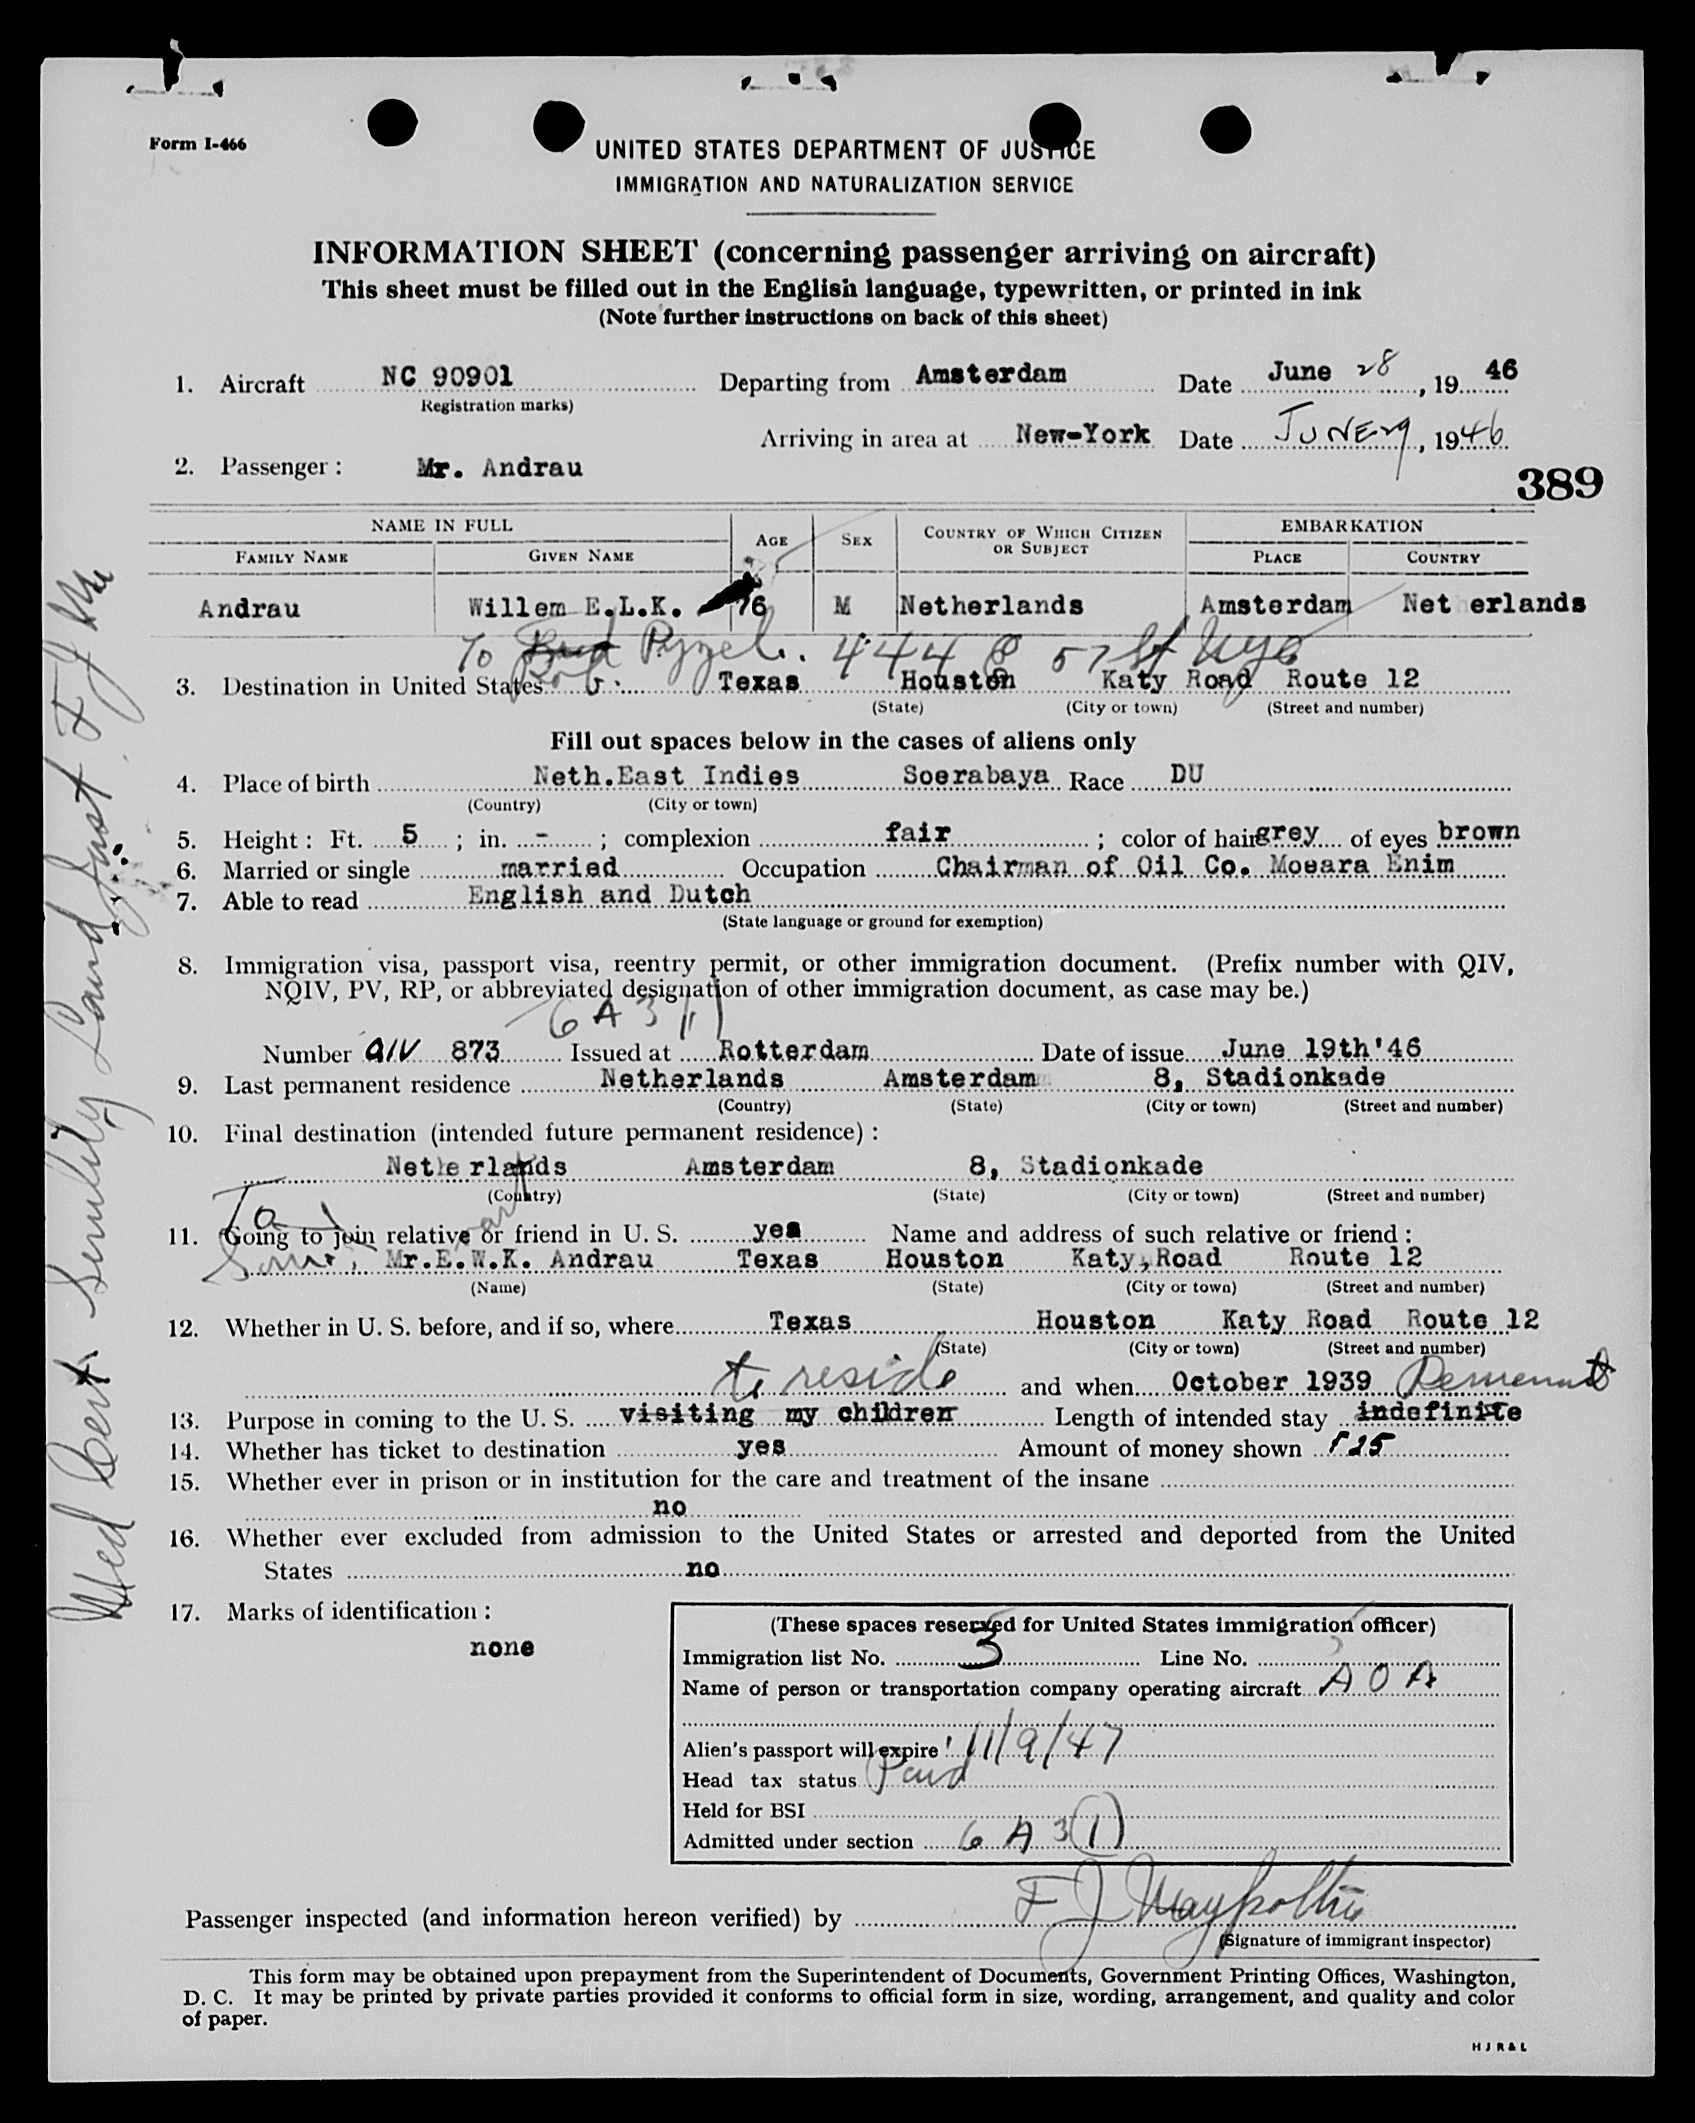 Form I-466
UNITED STATES DEPARTMENT OF JUSTICE
IMMIGRATION AND NATURALIZATION SERVICE
INFORMATION SHEET (concerning passenger arriving on aircraft)
This sheet must be filled out in the English language, typewritten, or printed in ink
(Note further instructions on back of this sheet)
1. Aircraft NC 90901 Departing from Amsterdam Date June 28, 19 46
(Registration marks)
Arriving in area at New-York Date JUNE 29, 1946
2. Passenger: Mr. Andrau
389
NAME IN FULL AGE SEX COUNTRY OF WHICH CITIZEN OR SUBJECT EMBARKATION
FAMILY NAME GIVEN NAME PLACE COUNTRY
Andrau Willem E.L.K. 76 M Netherlands Amsterdam Net erlands
To Pyzel. 444 E 57 St Nyc
3. Destination in United States Texas Houston Katy Road Route 12
(State) (City or town) (Street and number)
Fill out spaces below in the cases of aliens only
4. Place of birth Neth.East Indies Soerabaya Race DU
(Country) (City or town)
5. Height: Ft. 5 ; in. - ; complexion fair ; color of hair grey of eyes brown
6. Married or single married Occupation Chairman of Oil Co. Moeara Enim
7. Able to read English and Dutch
(State language or ground for exemption)
8. Immigration visa, passport visa, reentry permit, or other immigration document. (Prefix number with QIV,
NQIV, PV, RP, or abbreviated designation of other immigration document, as case may be.)
6 A 3
Number QIV 873 Issued at Rotterdam Date of issue June 19th'46
9. Last permanent residence Netherlands Amsterdam 8, Stadionkade
(Country) (State) (City or town) (Street and number)
10. Final destination (intended future permanent residence):
Netherlands Amsterdam 8, Stadionkade
(Country) (State) (City or town) (Street and number)
11. Going to join relative or friend in U. S. yes Name and address of such relative or friend:
Mr.E.W.K. Andrau Texas Houston Katy,Road Route 12
(Name) (State) (City or town) (Street and number)
12. Whether in U. S. before, and if so, where Texas Houston Katy Road Route 12
(State) (City or town) (Street and number)
to reside and when October 1939
13. Purpose in coming to the U. S. visiting my children Length of intended stay indefinite
14. Whether has ticket to destination yes Amount of money shown
15. Whether ever in prison or in institution for the care and treatment of the insane
no
16. Whether ever excluded from admission to the United States or arrested and deported from the United
States no
17. Marks of identification:
none
(These spaces reserved for United States immigration officer)
Immigration list No. 3 Line No.
Name of person or transportation company operating aircraft A O A
Alien's passport will expire 11/9/47
Head tax status Paid
Held for BSI
Admitted under section 6 A 3(1)
Passenger inspected (and information hereon verified) by F J
(Signature of immigrant inspector)
This form may be obtained upon prepayment from the Superintendent of Documents, Government Printing Offices, Washington,
D. C. It may be printed by private parties provided it conforms to official form in size, wording, arrangement, and quality and color
of paper.
H J R & L
Med Cert Senility